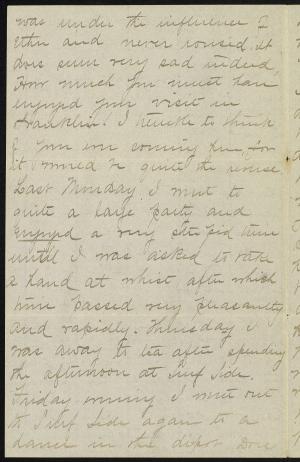 was under the influence of
Ether and never roused. it
does seem very sad indeed.
How much you must have
enjoyed your visit in
Franklin. I tremble to think
of you ever coming here for
it would be quite the reverse.
Last Monday I went to
quite a large party and
enjoyed a very stupid time
until I was asked to take
a hand at whist after which
time passed very pleasantly
and rapidly. Thursday I
was away to tea after spending
the afternoon at Surf Side.
Friday evening I went out
to Surf Side again to a
dance in the depot Dove